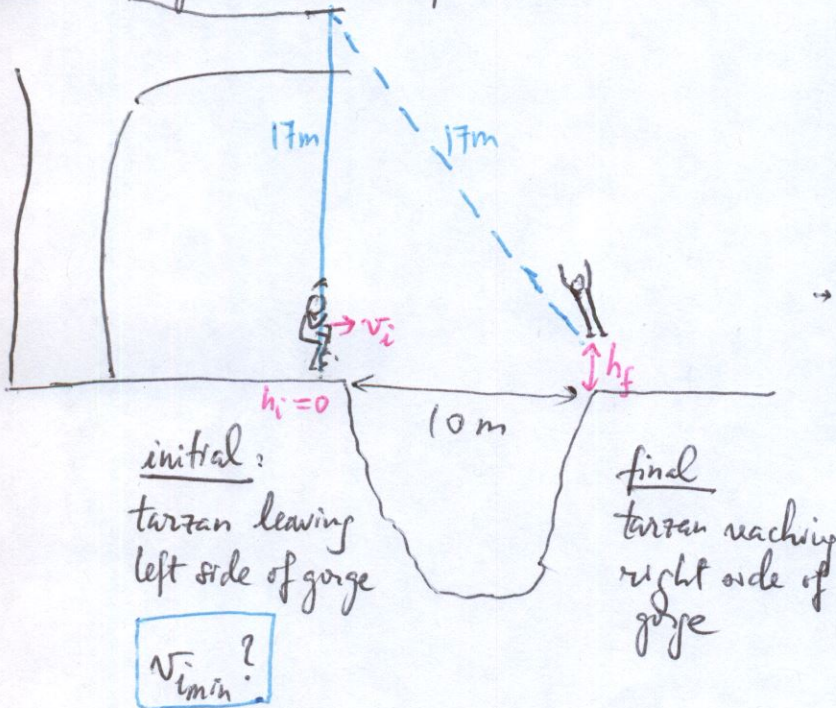 17m
17m
→ vᵢ
→
h_f
hᵢ = 0
10 m
initial:
tarzan leaving
left side of gorge
final
tarzan reaching
right side of
gorge
v_{i_{min}}?